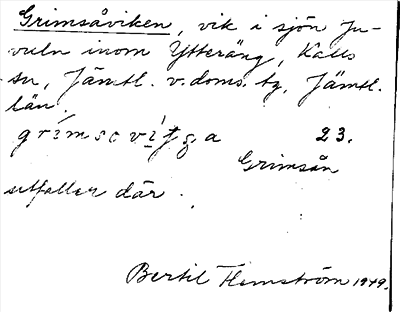 Grimsåviken, vik i sjön Ju-
veln inom Ytteräng, Kalls
sn, Jämtl. v. doms. tg, Jämtl.
län.
23.
Grimsån
utfaller där.
Bertil Flemström 1949.